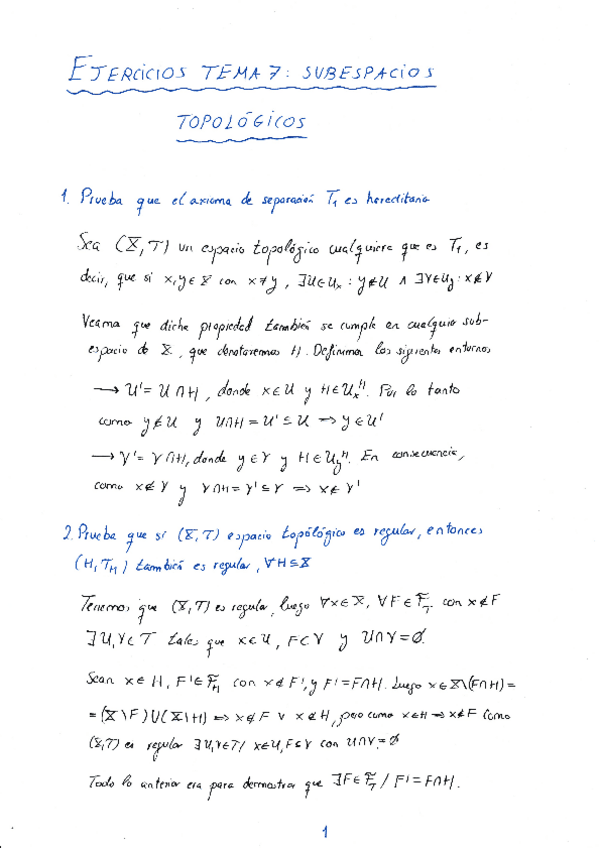 EJERCICIOS TEMA 7: SUBESPACIOS
TOPOLÓGICOS
1. Prueba que el axioma de separación T₁ es hereditario
Sea (X, T) un espacio topológico cualquiera que es T₁, es
decir, que si x,y∈X con x≠y, ∃U∈Uₓ: y∉U ∧ ∃V∈U_y: x∉V
Veamos que dicha propiedad también se cumple en cualquier sub-
espacio de X, que denotaremos H. Definimos los siguientes entornos
→ U' = U∩H, donde x∈U y H∈Uₓᴴ. Por lo tanto
como y∉U y U∩H = U' ⊆ U ⇒ y∉U'
→ V' = V∩H, donde y∈V y H∈U_yᴴ. En consecuencia,
como x∉V y V∩H = V' ⊆ V ⇒ x∉V'
2. Prueba que si (X, T) espacio topológico es regular, entonces
(H, T_H) también es regular, ∀H⊆X
Tenemos que (X, T) es regular, luego ∀x∈X, ∀F∈F_T con x∉F
∃U,V⊂T tales que x∈U, F⊂V y U∩V=Ø.
Sean x∈H, F'∈F_H con x∉F', y F'=F∩H. Luego x∈X\(F∩H)=
=(X\F)∪(X\H) ⇒ x∉F ∨ x∉H, pero como x∈H ⇒ x∉F Como
(X,T) es regular ∃U,V∈T / x∈U, F⊆V con U∩V=Ø
Todo lo anterior era para demostrar que ∃F∈F_T / F'=F∩H.
1